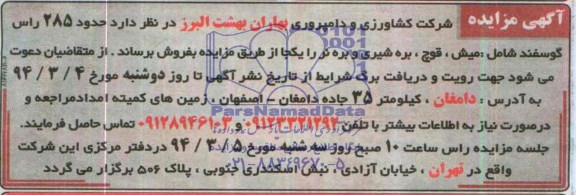 آگهی مزایده
شرکت کشاورزی و دامپروری بهاران بهشت البرز در نظر دارد حدود ۲۸۵ راس
گوسفند شامل :میش ، قوچ ، بره شیری و بره نر را یکجا از طریق مزایده بفروش برساند . از متقاضیان دعوت
می شود جهت رویت و دریافت برگ شرایط از تاریخ نشر آگهی تا روز دوشنبه مورخ ۹۴ / ۳ / ۴
به آدرس : دامغان ، کیلومتر ۳۵ جاده دامغان – اصفهان ، زمین های کمیته امداد مراجعه و
درصورت نیاز به اطلاعات بیشتر با تلفن و ۰۹۱۲۸۹۴۶۱۰۳ تماس حاصل فرمایند.
جلسه مزایده راس ساعت ۱۰ صبح روز سه شنبه مورخ ۹۴ / ۳ / ۵ در دفتر مرکزی این شرکت
واقع در تهران ، خیابان آزادی ، نبش اسکندری جنوبی ، پلاک ۵۰۶ برگزار می گردد
ParsNamadData
۰۲۱-۸۸۳۴۹۶۷۰-۵